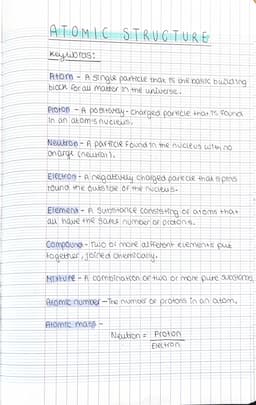 ATOMIC STRUCTURE
Keywords:
Atom - A single particle that is the basic building
block for all matter in the universe.
Proton - A positively-charged particle that is found
in an atom's nucleus.
Neutron - A particle found in the nucleus with no
charge (neutral).
Electron - A negatively charged particle that spins
round the outside of the nucleus.
Element - A substance consisting of atoms that
all have the same number of protons.
Compound - Two or more different elements put
together, joined chemically.
Mixture - A combination of two or more pure substances.
Atomic number - The number of protons in an atom.
Atomic mass -
Neutron = Proton
Electron